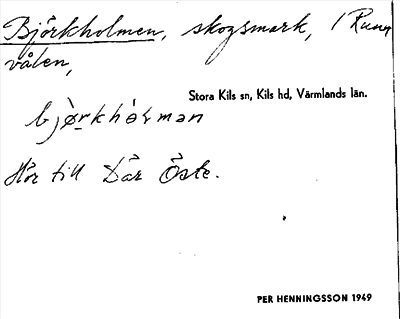 Björkholmen, skogsmark, i Runn
vålen,
Stora Kils sn, Kils hd, Värmlands län.
Hör till Där Öste.
PER HENNINGSSON 1949